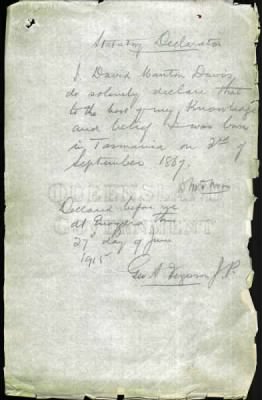 Statutory Declaration
I David Manton Davis
do solemnly declare that
to the best of my knowledge
and belief I was born
in Tasmania on 2nd of
September 1887.
QUEENSLAND
GOVERNMENT
Declared before me
at Enoggera this
27th day of June
1915
Geo A Ferguson J.P.